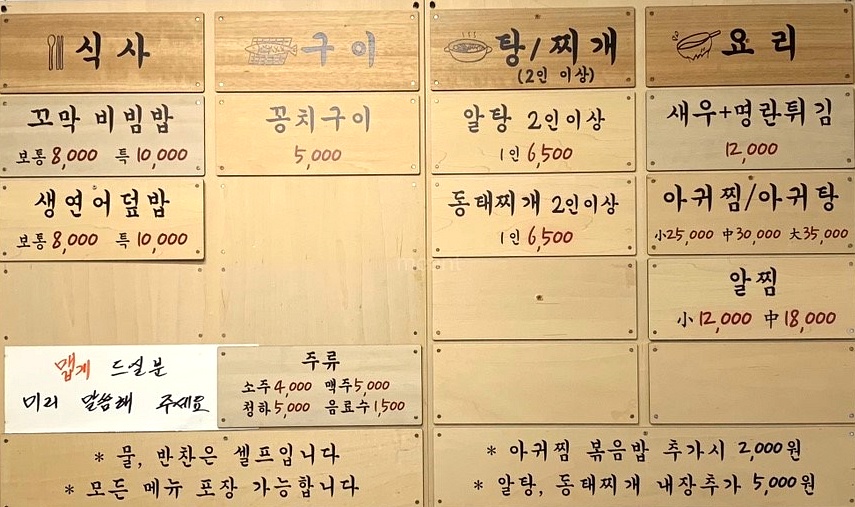 식사
꼬막 비빔밥
보통 8,000 특 10,000
생연어덮밥
보통 8,000 특 10,000
맵게 드실분
미리 말씀해 주세요
구이
꽁치구이
5,000
주류
소주 4,000 맥주 5,000
청하 5,000 음료수 1,500
* 물, 반찬은 셀프입니다
* 모든 메뉴 포장 가능합니다
탕/찌개
(2인 이상)
알탕 2인이상
1인 6,500
동태찌개 2인이상
1인 6,500
요리
새우+명란튀김
12,000
아귀찜/아귀탕
小25,000 中30,000 大35,000
알찜
小 12,000 中 18,000
* 아귀찜 볶음밥 추가시 2,000원
* 알탕, 동태찌개 내장추가 5,000원